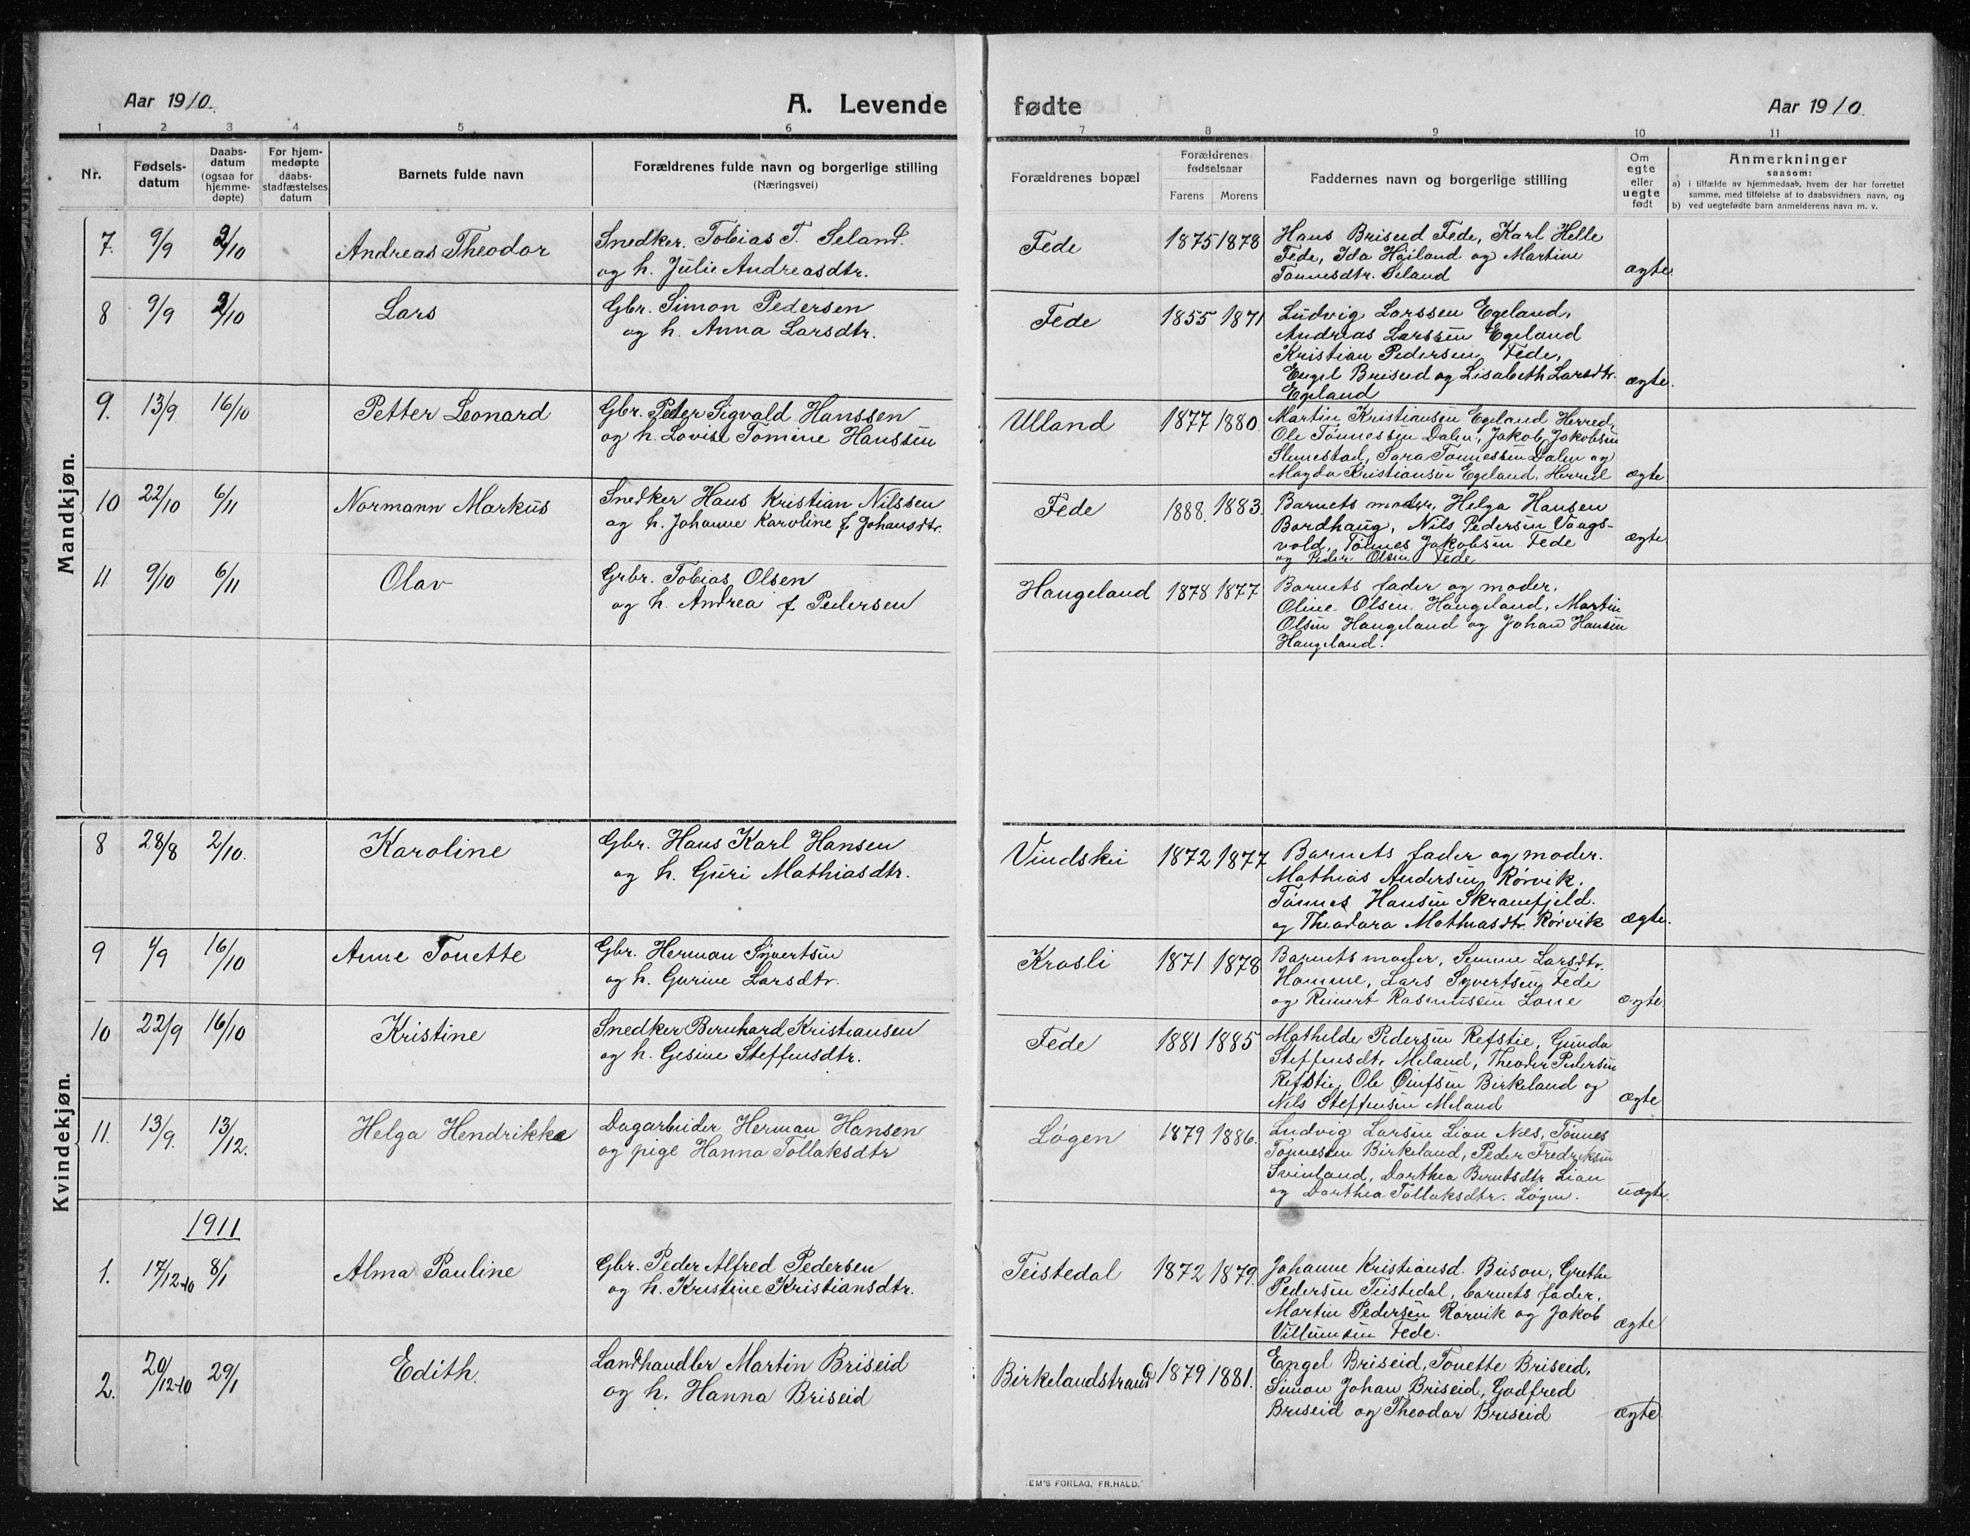 Aar 1910. A. Levende fødte Aar 1910.
1 2 3 4 5 6 7 8 9 10 11
Nr. Fødsels-datum Daabs-datum (ogsaa for hjemme-døpte) For hjem-medøpte daabs-stadfæstelses datum Barnets fulde navn Forældrenes fulde navn og borgerlige stilling (Næringsvei) Forældrenes bopæl Forældrenes fødselsaar Farens Morens Faddernes navn og borgerlige stilling Om egte eller uegte født Anmerkninger saasom:
a) i tilfælde av hjemmedaab, hvem der har forrettet samme, med tilføielse af to daabsvidners navn, og
b) ved uegtefødte barn anmelderens navn m. v.
Mandkjøn.
7. 9/9 2/10 Andreas Theodor Snedker. Tobias T. Seland. Fede 1875 1878 Hans Briseid Fede, Karl Helle
og h. Julie Andreasdtr. Fede, Ida Høiland og Martine
Tønnesdtr. Seland ægte
8 9/9 2/10 Lars Gbr. Simon Pedersen Fede 1855 1871 Ludvig Larssen Egeland,
og h. Anna Larsdtr. Andreas Larssen Egeland
Kristian Pedersen Fede,
Engel Briseid og Lisabeth Larsdtr. ægte.
Egeland
9. 13/9 16/10 Petter Leonard Gbr. Peder Sigvald Hanssen Ulland 1877 1880 Martin Kristiansen Egeland Herred,
og h. Lovise Tomine Hanssen Ole Tønnessen Dalen, Jakob Jakobsen
Slimestad, Sara Tønnessen Dalen og
Magda Kristiansen Egeland, Herred ægte
10 22/10 6/11 Normann Markus Snedker Hans Kristian Nilssen Fede 1888. 1883. Barnets moder, Helga Hansen
og h. Johanne Karoline f. Johansdtr. Bordhaug, Nils Pedersen Vaags-
vold, Tønnes Jakobsen Fede ægte
og Peder Olsen Fede
11 9/10 6/11 Olav Grbr. Tobias Olsen Haugeland 1878 1877 Barnets fader og moder.
og h. Andrea f. Pedersen Oline Olsen Haugeland, Martin
Olsen Haugeland og Johan Hansen
Haugeland.
Kvindekjøn.
8 28/8 2/10. Karoline Gbr. Hans Karl Hansen Vindskei 1872 1877 Barnets fader og moder.
og h. Guri Mathiasdtr. Mathias Andersen Rørvik.
Tønnes Hansen Skranefjeld.
og Theodora Mathiasdtr. Rørvik ægte.
9 4/9 16/10 Anne Tonette Gbr. Herman Sivertsen Krosli 1871 1878 Barnets moder, Larsdtr.
og h. Gurine Larsdtr. Homme, Lars Syvertsen Fede
og Reinert Rasmussen Lone ægte
10 22/9 16/10 Kristine Snedker Bernhard Kristiansen Fede 1881 1885 Mathilde Pedersen Refstie, Gunda
og h. Gesine Steffensdtr. Steffensdt. Meland, Theodor Pedersen
Refstie, Ole Birkeland og
Nils Steffensen Meland ægte
11. 13/9. 13/12. Helga Hendrikke Dagarbeider Herman Hansen Løgen 1879 1886. Ludvig Larsen Lian Næs, Tønnes
og pige Hanna Tollaksdtr Tønnessen Birkeland, Peder Fredriksen
Svinland, Dorthea Berntsdtr. Lian
og Dorthea Tollaksdtr. Løgen. uægte.
1911
1. 17/12-10 8/1 Alma Pauline Gbr. Peder Alfred Pedersen Teistedal 1872 1879. Johanne Kristiansd. Grethe
og h. Kristine Kristiansdtr. Pedersen Teistedal, barnets fader,
Martin Pedersen Rørvik og Jakob
Villumsen Fede. ægte
2. 20/12-10 29/1 Edith. Landhandler Martin Briseid Birkelandstrand 1879 1881. Engel Briseid, Tonette Briseid,
og h. Hanna Briseid Simon Johan Briseid, Godfred
Briseid og Theodor Briseid ægte
EM'S FORLAG, FR.HALD.